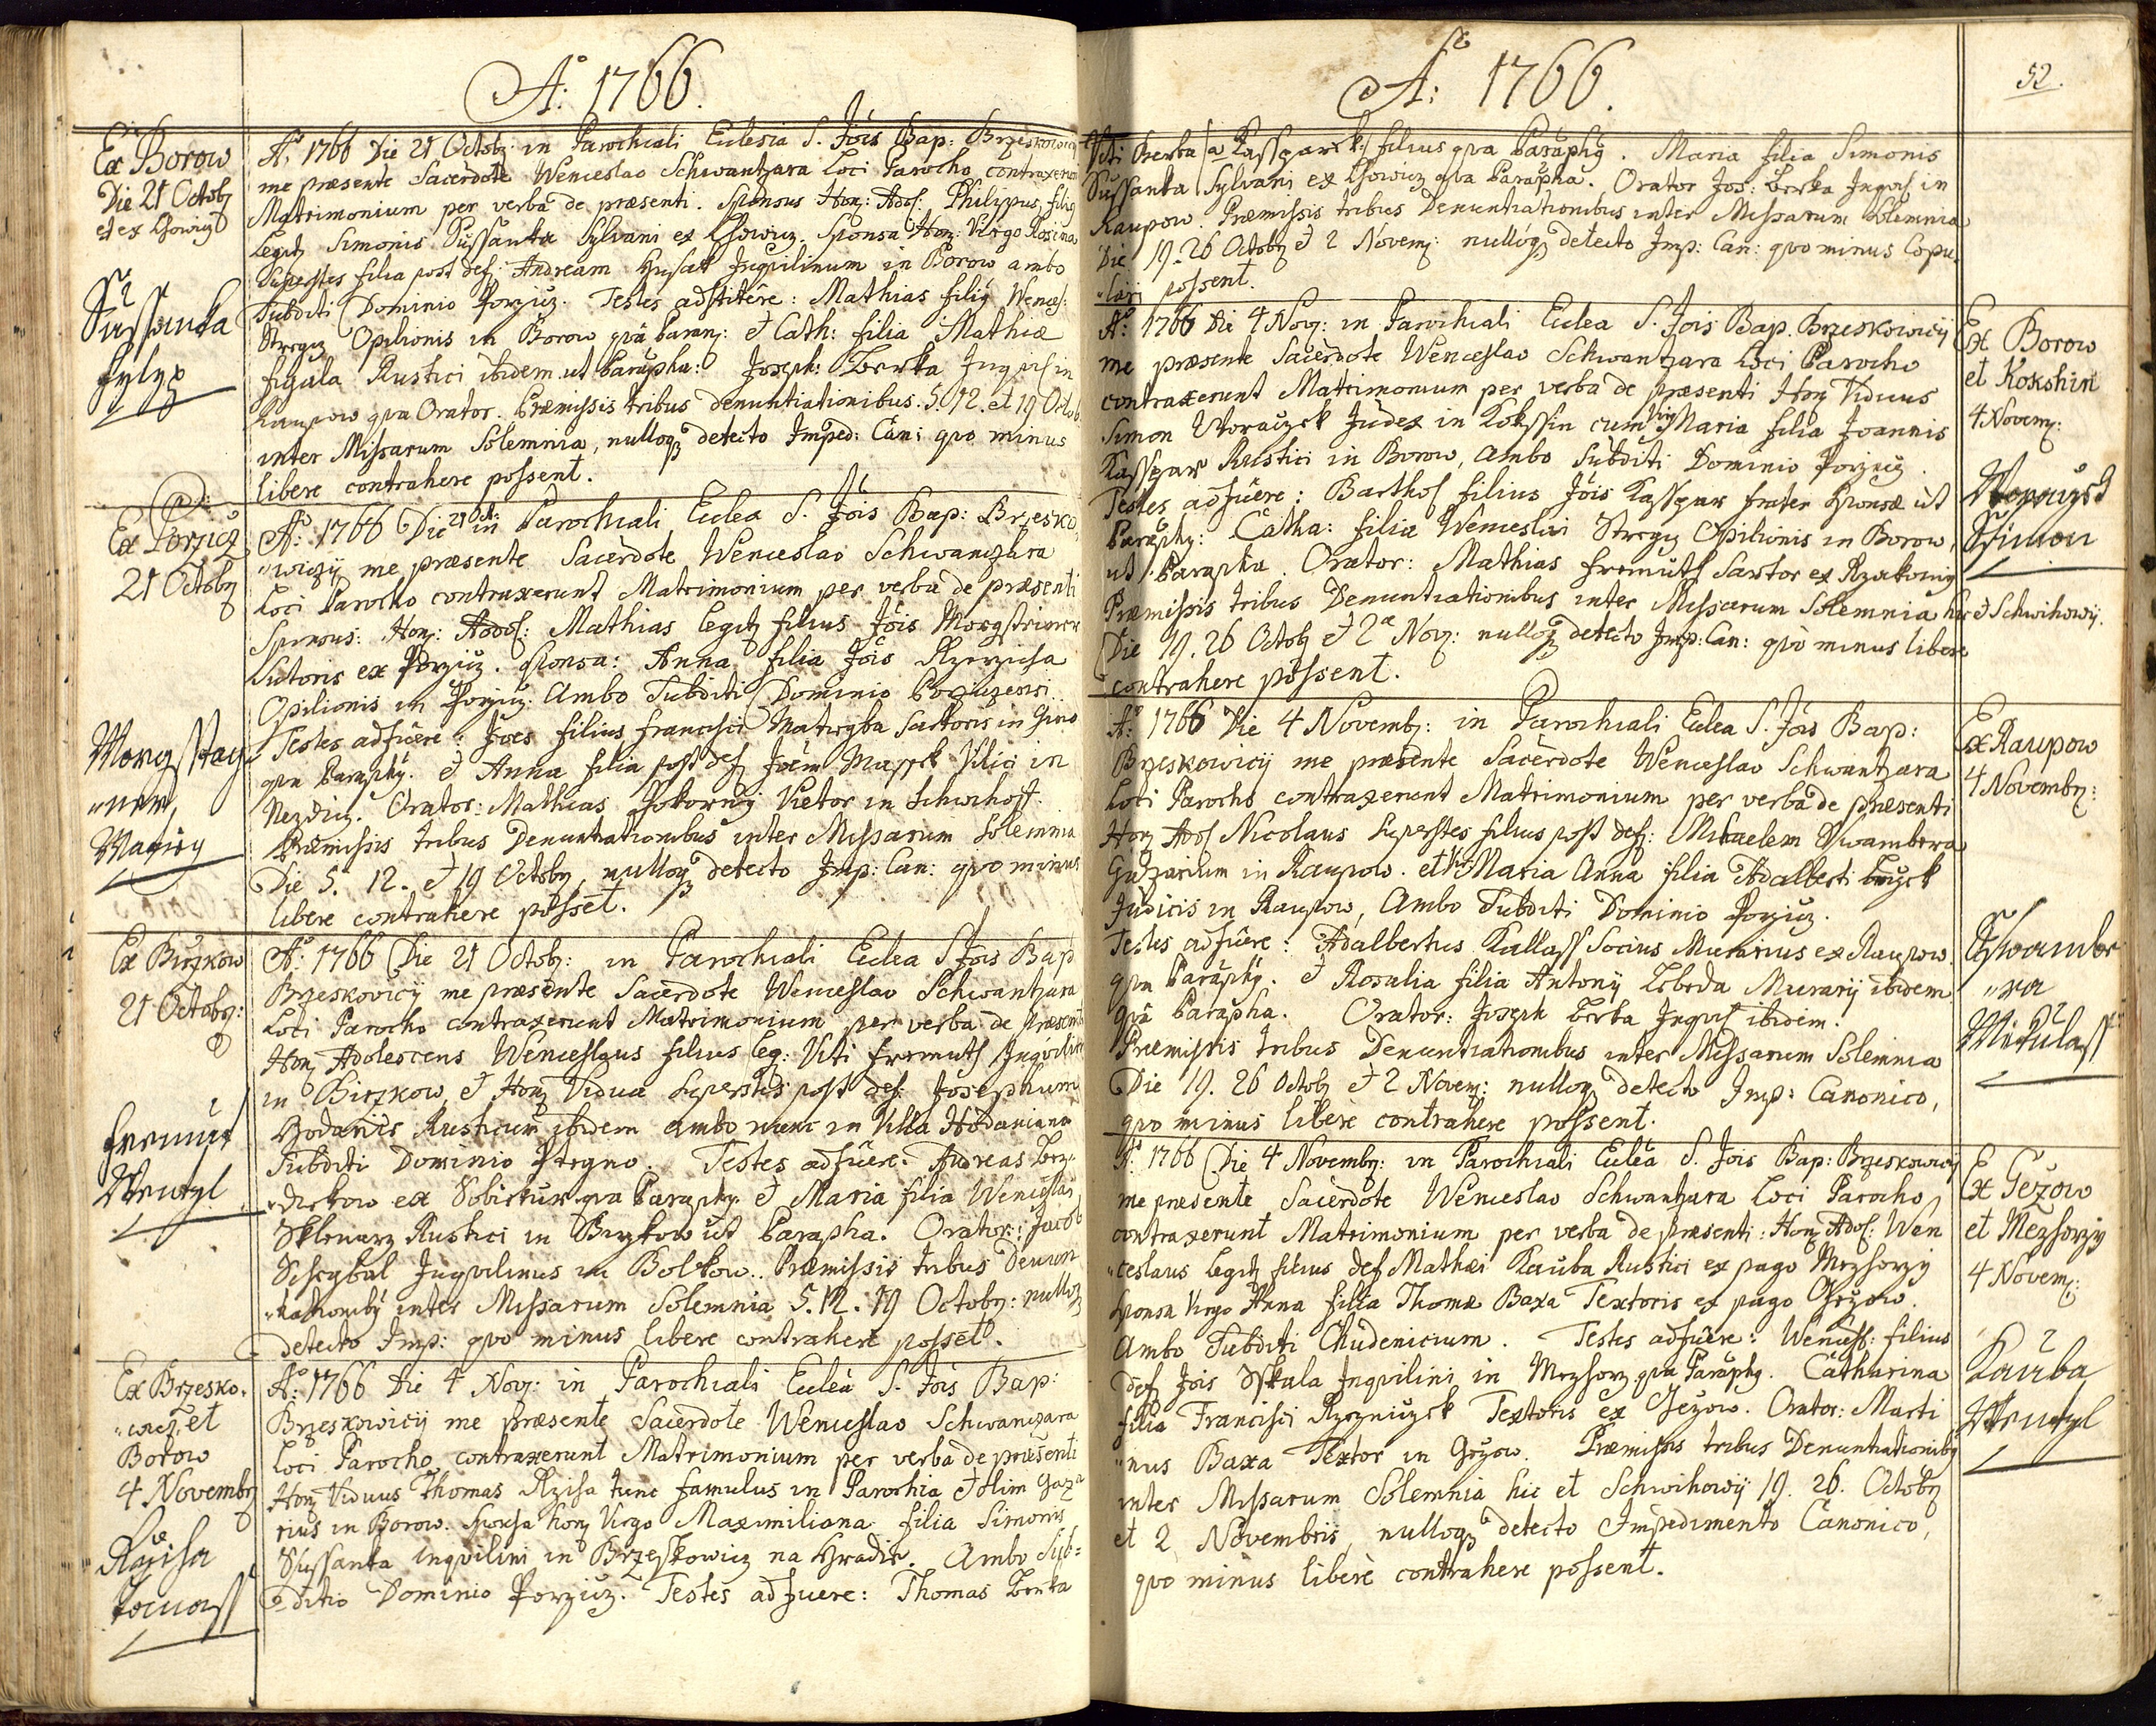 Aº: 1766.
Ex Borow
Die 21 Octob
et ex Lhowicz
Sussanka
Fylyp
Aº: 1766 Die 21 Octob: in Parochiali Eclesia S. Jois Bap: Brzeskowicy
me præsente Sacerdote Wenceslao Schwantzara Loci Parocho contraxerunt
Matrimonium per verba de præsenti. Sponsus Hon: Adol: Philippus, filius
Legit Simonis Sussanka Sylvani ex Lhowicz. Sponsa Hon: Virgo Rosina
Superstes filia post def: Andream Husak Inquilinum in Borow ambo
Subditi Dominio Porzicz. Testes adstitêre: Mathias filius Wencesl:
Opilionis in Borow qua Paran: et Cath: filia Mathiæ
Figula Rustici ibidem ut Parapha: Joseph: Berka Inquil in
Raupow qua Orator. Præmissis tribus denuntiationibus. 5. 12. et 19 Octob
inter Missarum Solemnia, nulloq detecto Imped: Can: quo minus
libere contrahere possent.
Ex Porzicz
21 Octob
Aº: 1766 Die 21 Oct: in Parochiali Eclea S. Jois Bap: Brzesko
"wiczy me præsente Sacerdote Wenceslao Schwanczara
Loci Parocho contraxerunt Matrimonium per verba de præsenti
Sponsus: Hon: Adol: Mathias Legit filius Jois
Sutoris ex Porzicz. Sponsa: Anna filia Jois
Opilionis in Porzicz. Ambo Subditi Dominio Porziczensi.
Testes adfuêre: Joes filius Francisci Sartoris in
qua Paraphy. et Anna filia post def Joem Villici in
Nezdicz. Orator: Mathias Pokorny Vietor in Schwihoff.
Præmissis tribus Denuntiationibus inter Missarum Solemnia
Die 5. 12. et 19 Octob, nulloq detecto Imp: Can: quo minus
libere contrahere possêt.
Ex Birzkow
21 Octob:
Fremut
Wentzl
Aº: 1766 Die 21 Octob: in Parochiali Eclea S Jois Bap
Brzeskovicy me præsente Sacerdote Wenceslao Schwantzara
Loci Parocho contraxerunt Matrimonium per verba de præsenti
Hon Adolescens Wenceslaus filius leg: Viti Fremuth Inquilini
in Birzkow, et Hon Vidua Superstes post def: Josephum
Rusticum ibidem ambo nunc in Villa
Subditi Dominio. Testes adfuêre: Andreas
ex qua Paraphy et Maria filia Wenceslai
Sklenarz Rustici in Birzkow ut Parapha. Orator: Jacob
Inquilinus in Bolkow. Præmissis tribus Denun
inter Missarum Solemnia 5. 12. 19 Octob: nulloq
detecto Imp: quo minus libere contrahere possêt.
Ex Brzesko.
"wicz, et
Borow
4 Novemb
Rzisa
Tomass
Aº: 1766 Die 4 Nov: in Parochiali Eclea S. Jois Bap:
Brzeskowicij me præsente Sacerdote Wenceslao Schwanczara
Loci Parocho contraxerunt Matrimonium per verba de præsenti
Hon Viduus Thomas Rzisa tunc famulus in Parochia et olim Gaza
rius in Borow. Sponsa hon Virgo Maximiliana filia Simonis
Sussanka inquilini in Brzeskowicz na Hradie. Ambo Sub=
diti Dominio Porzicz. Testes adfuere: Thomas Berka
Aº: 1766.
52.
Viti Berka a Kasspar filius qua Paraphy. Maria filia Simonis
Sussanka Sylvani ex Lhowicz qua Parapha. Orator Jos: Berka Inquil in
Raupow. Præmissis tribus Denuntiationibus inter Missarum Solemnia
Die 19. 26 Octob et 2 Novem: nulloq detecto Imp: Can: quo minus Copu-
"lari possent.
Ex Borow
et Kokshin
4 Novem:
Ssimon
et Schwihowij.
Aº: 1766 Die 4 Nov: in Parochiali Eclea S. Jois Bap. Brzeskowicij
me præsente Sacerdote Wenceslao Schwantzara Loci Parocho
contraxerunt Matrimonium per verba de præsenti Hon Viduus
Simon Judex in Kokssin cum Vir Maria filia Joannis
Kasspar Rustici in Borow, Ambo Subditi Dominio Porzicz.
Testes adfuêre: Barthol filius Jois Kasspar frater Sponsæ ut
Paraphy: Catha: filia Wenceslai Opilionis in Borow,
ut Parapha. Orator: Mathias Fremuth Sartor ex
Præmissis tribus Denuntiationibus inter Missarum Solemnia hic
Die 19. 26 Octob et 2ª Nov: nulloq detecto Imp: Can: quò minus libere
contrahere possent.
Ex Raupow
4 Novemb:
Mikulass
Aº: 1766 Die 4 Novemb: in Parochiali Eclea S. Jois Bap:
Brzeskowicij me præsente Sacerdote Wenceslao Schwantzara
Loci Parocho contraxerunt Matrimonium per verba de præsenti
Hon Adol Nicolaus Superstes filius post def: Michaelem
in Raupow. et Vir Maria Anna filia Adalberti
Judicis in Raupow, Ambo Subditi Dominio Porzicz.
Testes adfuêre: Adalbertus Kallass Socius Murarius ex Raupow.
qua Paraphy. et Rosalia filia Antonij Lebeda Murarij ibidem
quà Parapha. Orator: Joseph Berka Inquil ibidem.
Præmissis tribus Denuntiationibus inter Missarum Solemnia
Die 19. 26 Octob et 2 Novem: nulloq detecto Imp: Canonico,
quo minus libere contrahere possent.
Ex Gezow
et Mezhorzij
4 Novem:
Kauba
Wentzl
Aº: 1766 Die 4 Novemb: in Parochiali Eclea S. Jois Bap: Brzeskowicij
me præsente Sacerdote Wenceslao Schwantzara Loci Parocho,
contraxerunt Matrimonium per verba de præsenti: Hon Adol: Wen
"ceslaus Legit filius def Mathæi Kauba Rustici ex pago Mezhorzy
Sponsa Virgo Anna filia Thomæ Baxa Textoris ex pago Gezow.
Ambo Subditi Chudenicium. Testes adfuêre: Wencesl: filius
def Jois Skala Inquilini in Mezhorz. qua Paraphy. Catharina
filia Francisci Textoris ex Gezow. Orator: Marti
"nus Baxa Textor in Gezow. Præmissis tribus Denuntiationibq
inter Missarum Solemnia hic et Schwihowij 19. 26. Octob
et 2 Novembris, nulloq detecto Impedimento Canonico,
quo minus liberè contrahere possent.